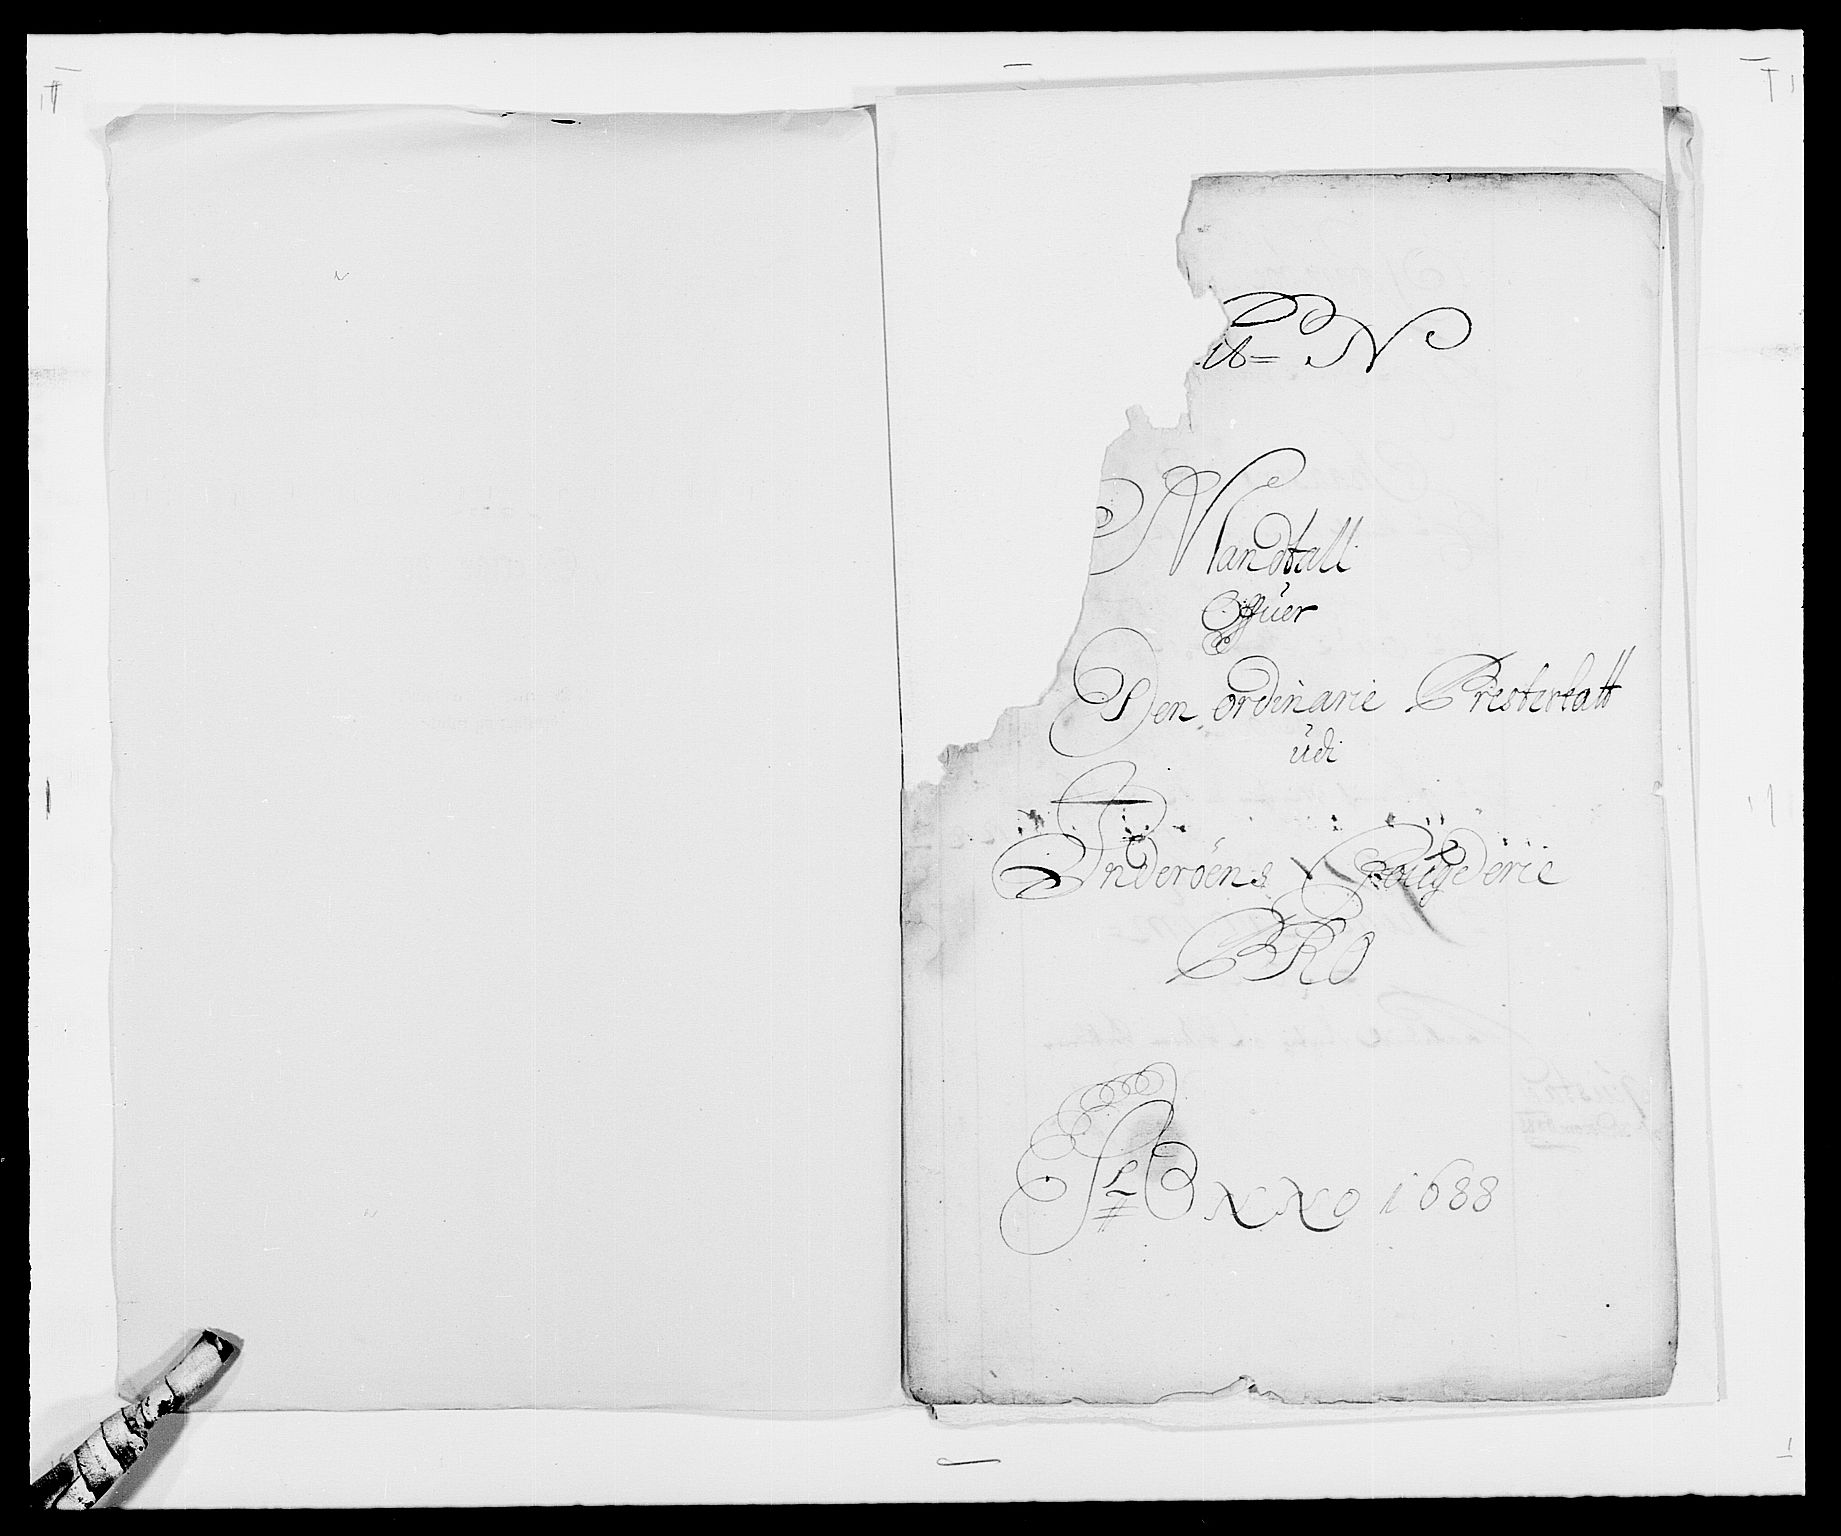 16= N
Mandtall
Offuer
Den ordinarie Presteskatt
udi
Inderøens Fougderie
PRO
ANNO 1688